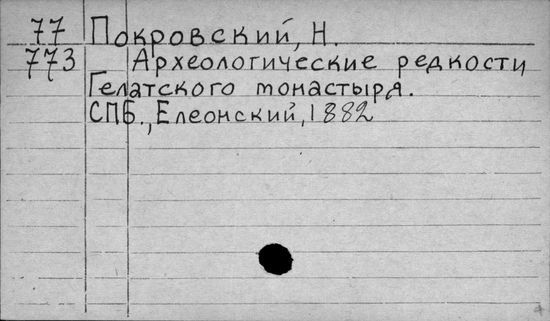 77 Покровский, Н.
773 Археологические редкости
Гелатского монастыря.
СПБ., Елеонский, 1882